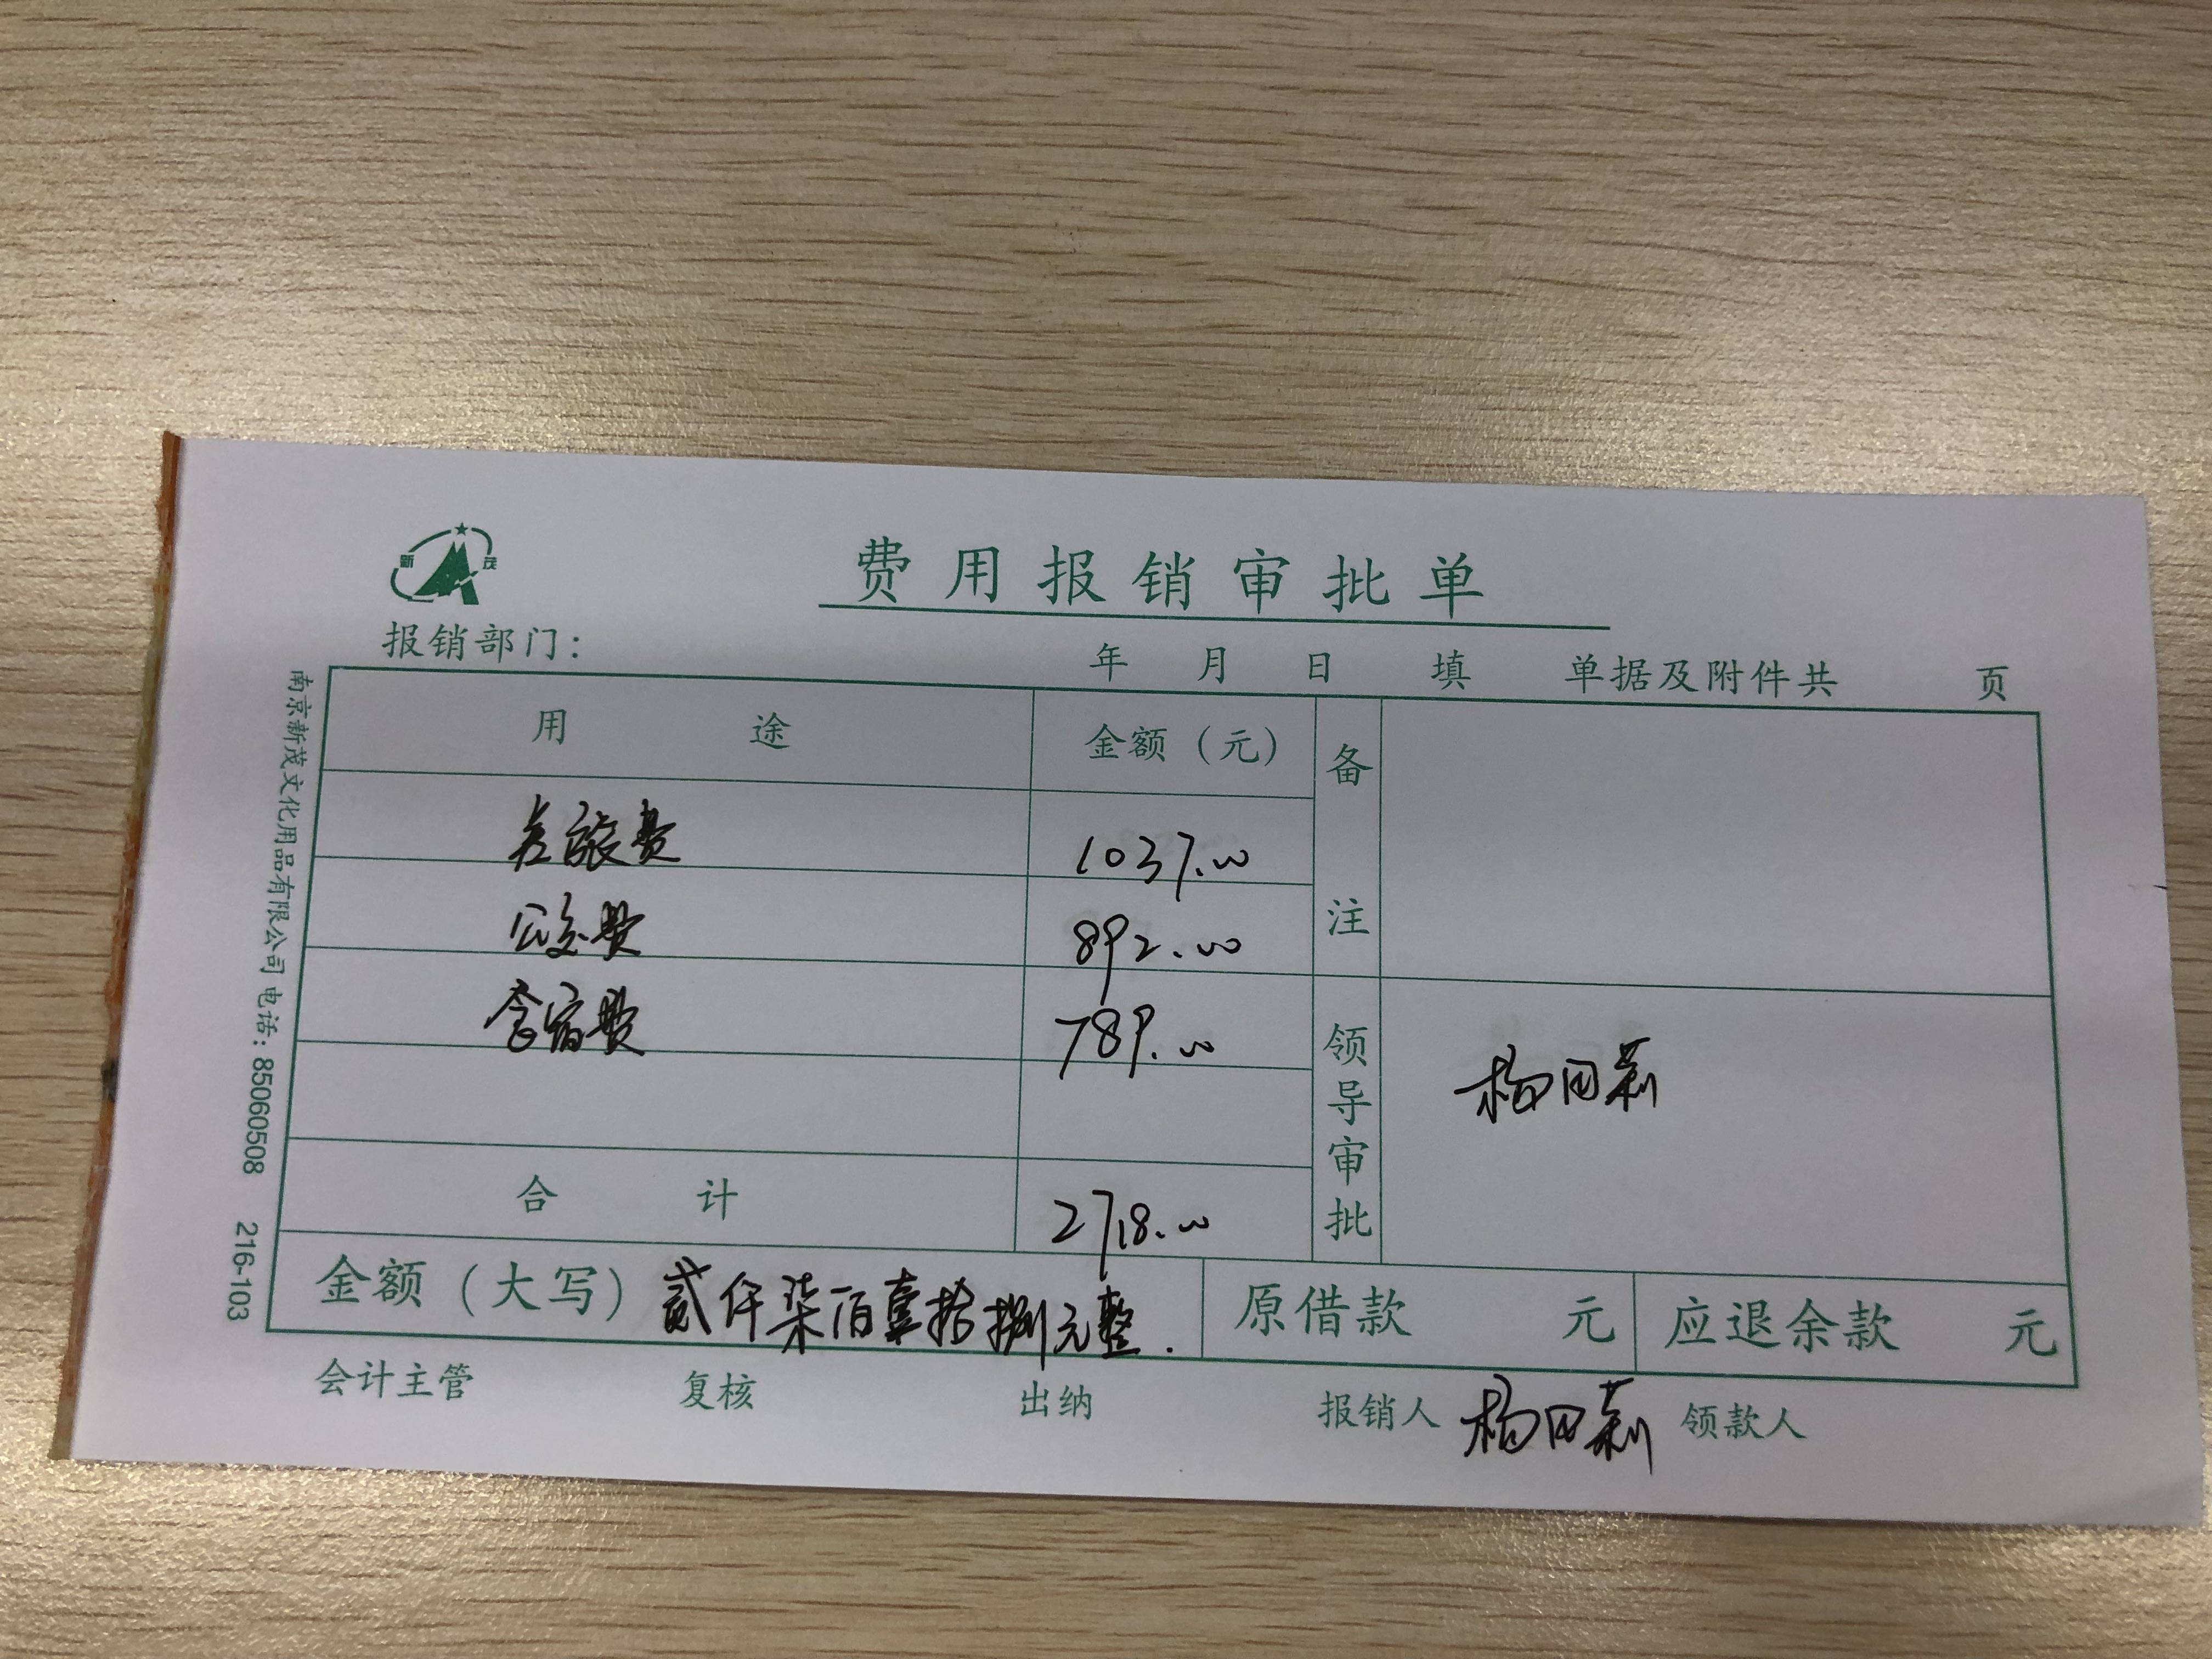 费用报销审批单
报销部门： 年 月 日 填 单据及附件共 页
用途 金额（元） 备注
差旅费 1037.00
公交费 892.00
运输费 789.00
领导审批
合计 2718.00
金额（大写）贰仟柒佰壹拾捌元整. 原借款 元 应退余款 元
会计主管 复核 出纳 报销人 领款人
南京新茂文化用品有限公司 电话：85060508 216-103
新
茂